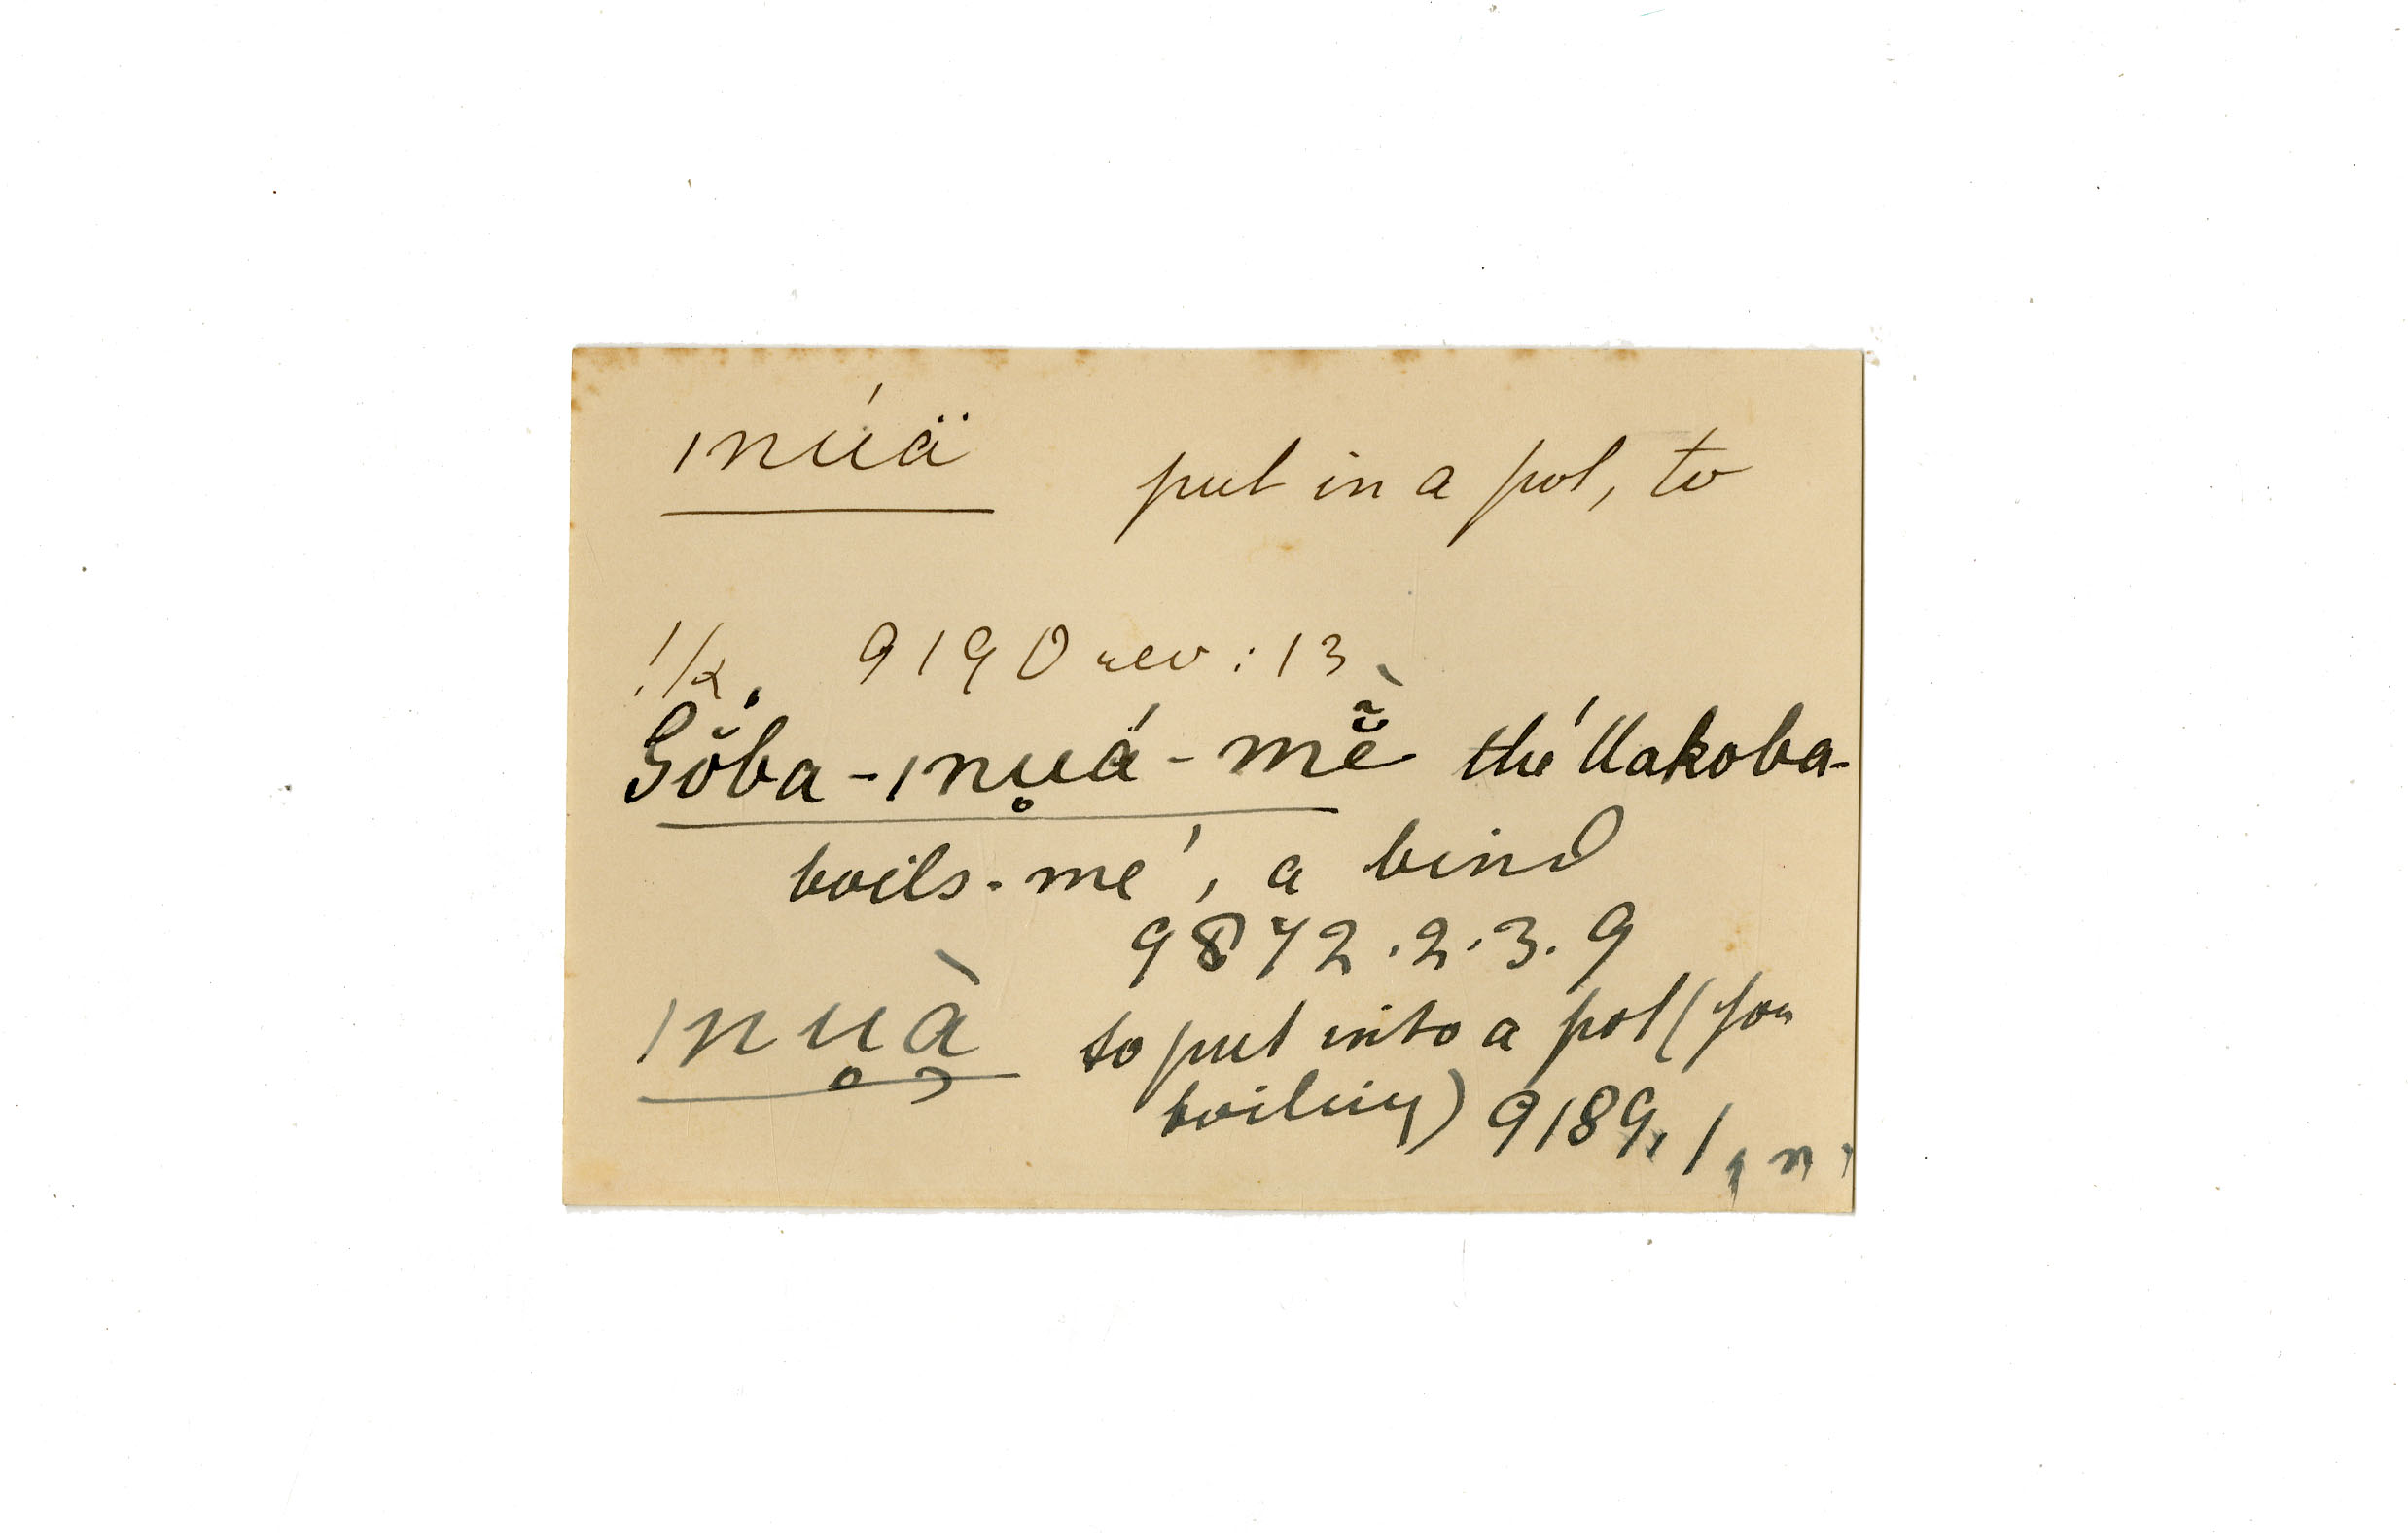 ınúä put in a pot, to
!k. 9190 rev: 13
Gŏba-ınu̥á-mẽ̀ the 'Uakoba-
boils-me', a bird
9872.2.3.9
ınu̥à̹ to put into a pot (for
boiling) 9189, 1, n.